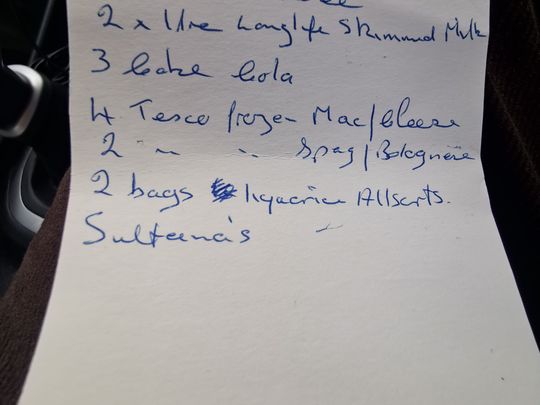 2 x 1 litre Longlife Skimmed Milk
3 Coke Cola
4 Tesco frozen Mac/Cheese
2 " " Spag/Bolognese
2 bags liquorice Allsorts.
Sultana's